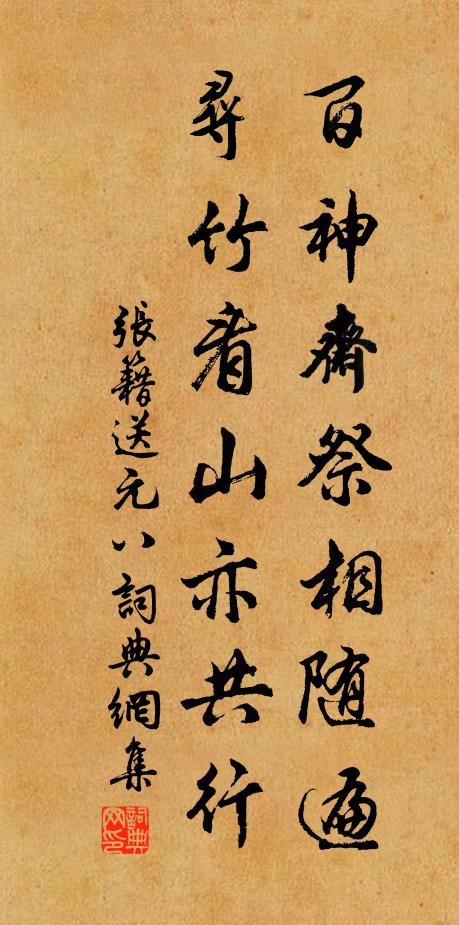 百神齋祭相随遍
尋竹看山亦共行
張籍送元八詞典網集
詞典网印